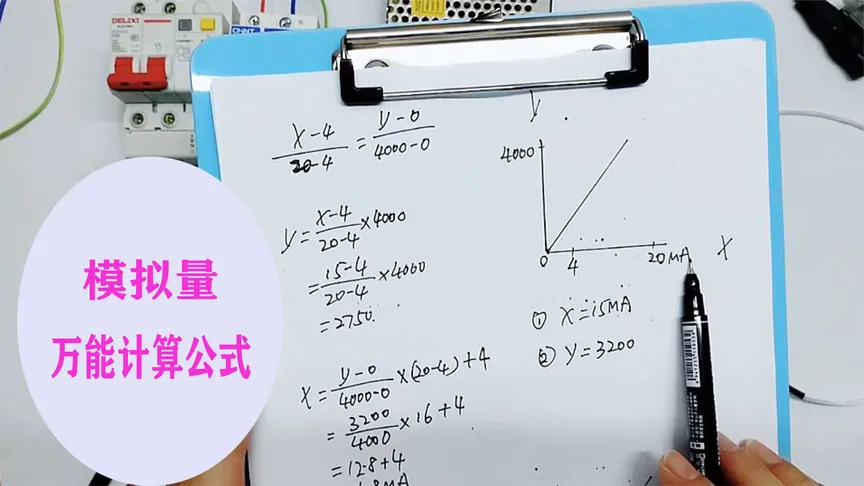 DELIXI
CHNT
N
模拟量
万能计算公式
X-4/20-4 = y-0/4000-0
y = X-4/20-4 ×4000
= 15-4/20-4 ×4000
= 2750.
X = y-0/4000-0 ×(20-4)+4
= 3200/4000 × 16 +4
= 12.8+4
y
4000
0 4 20MA X
① X=15MA
② Y=3200